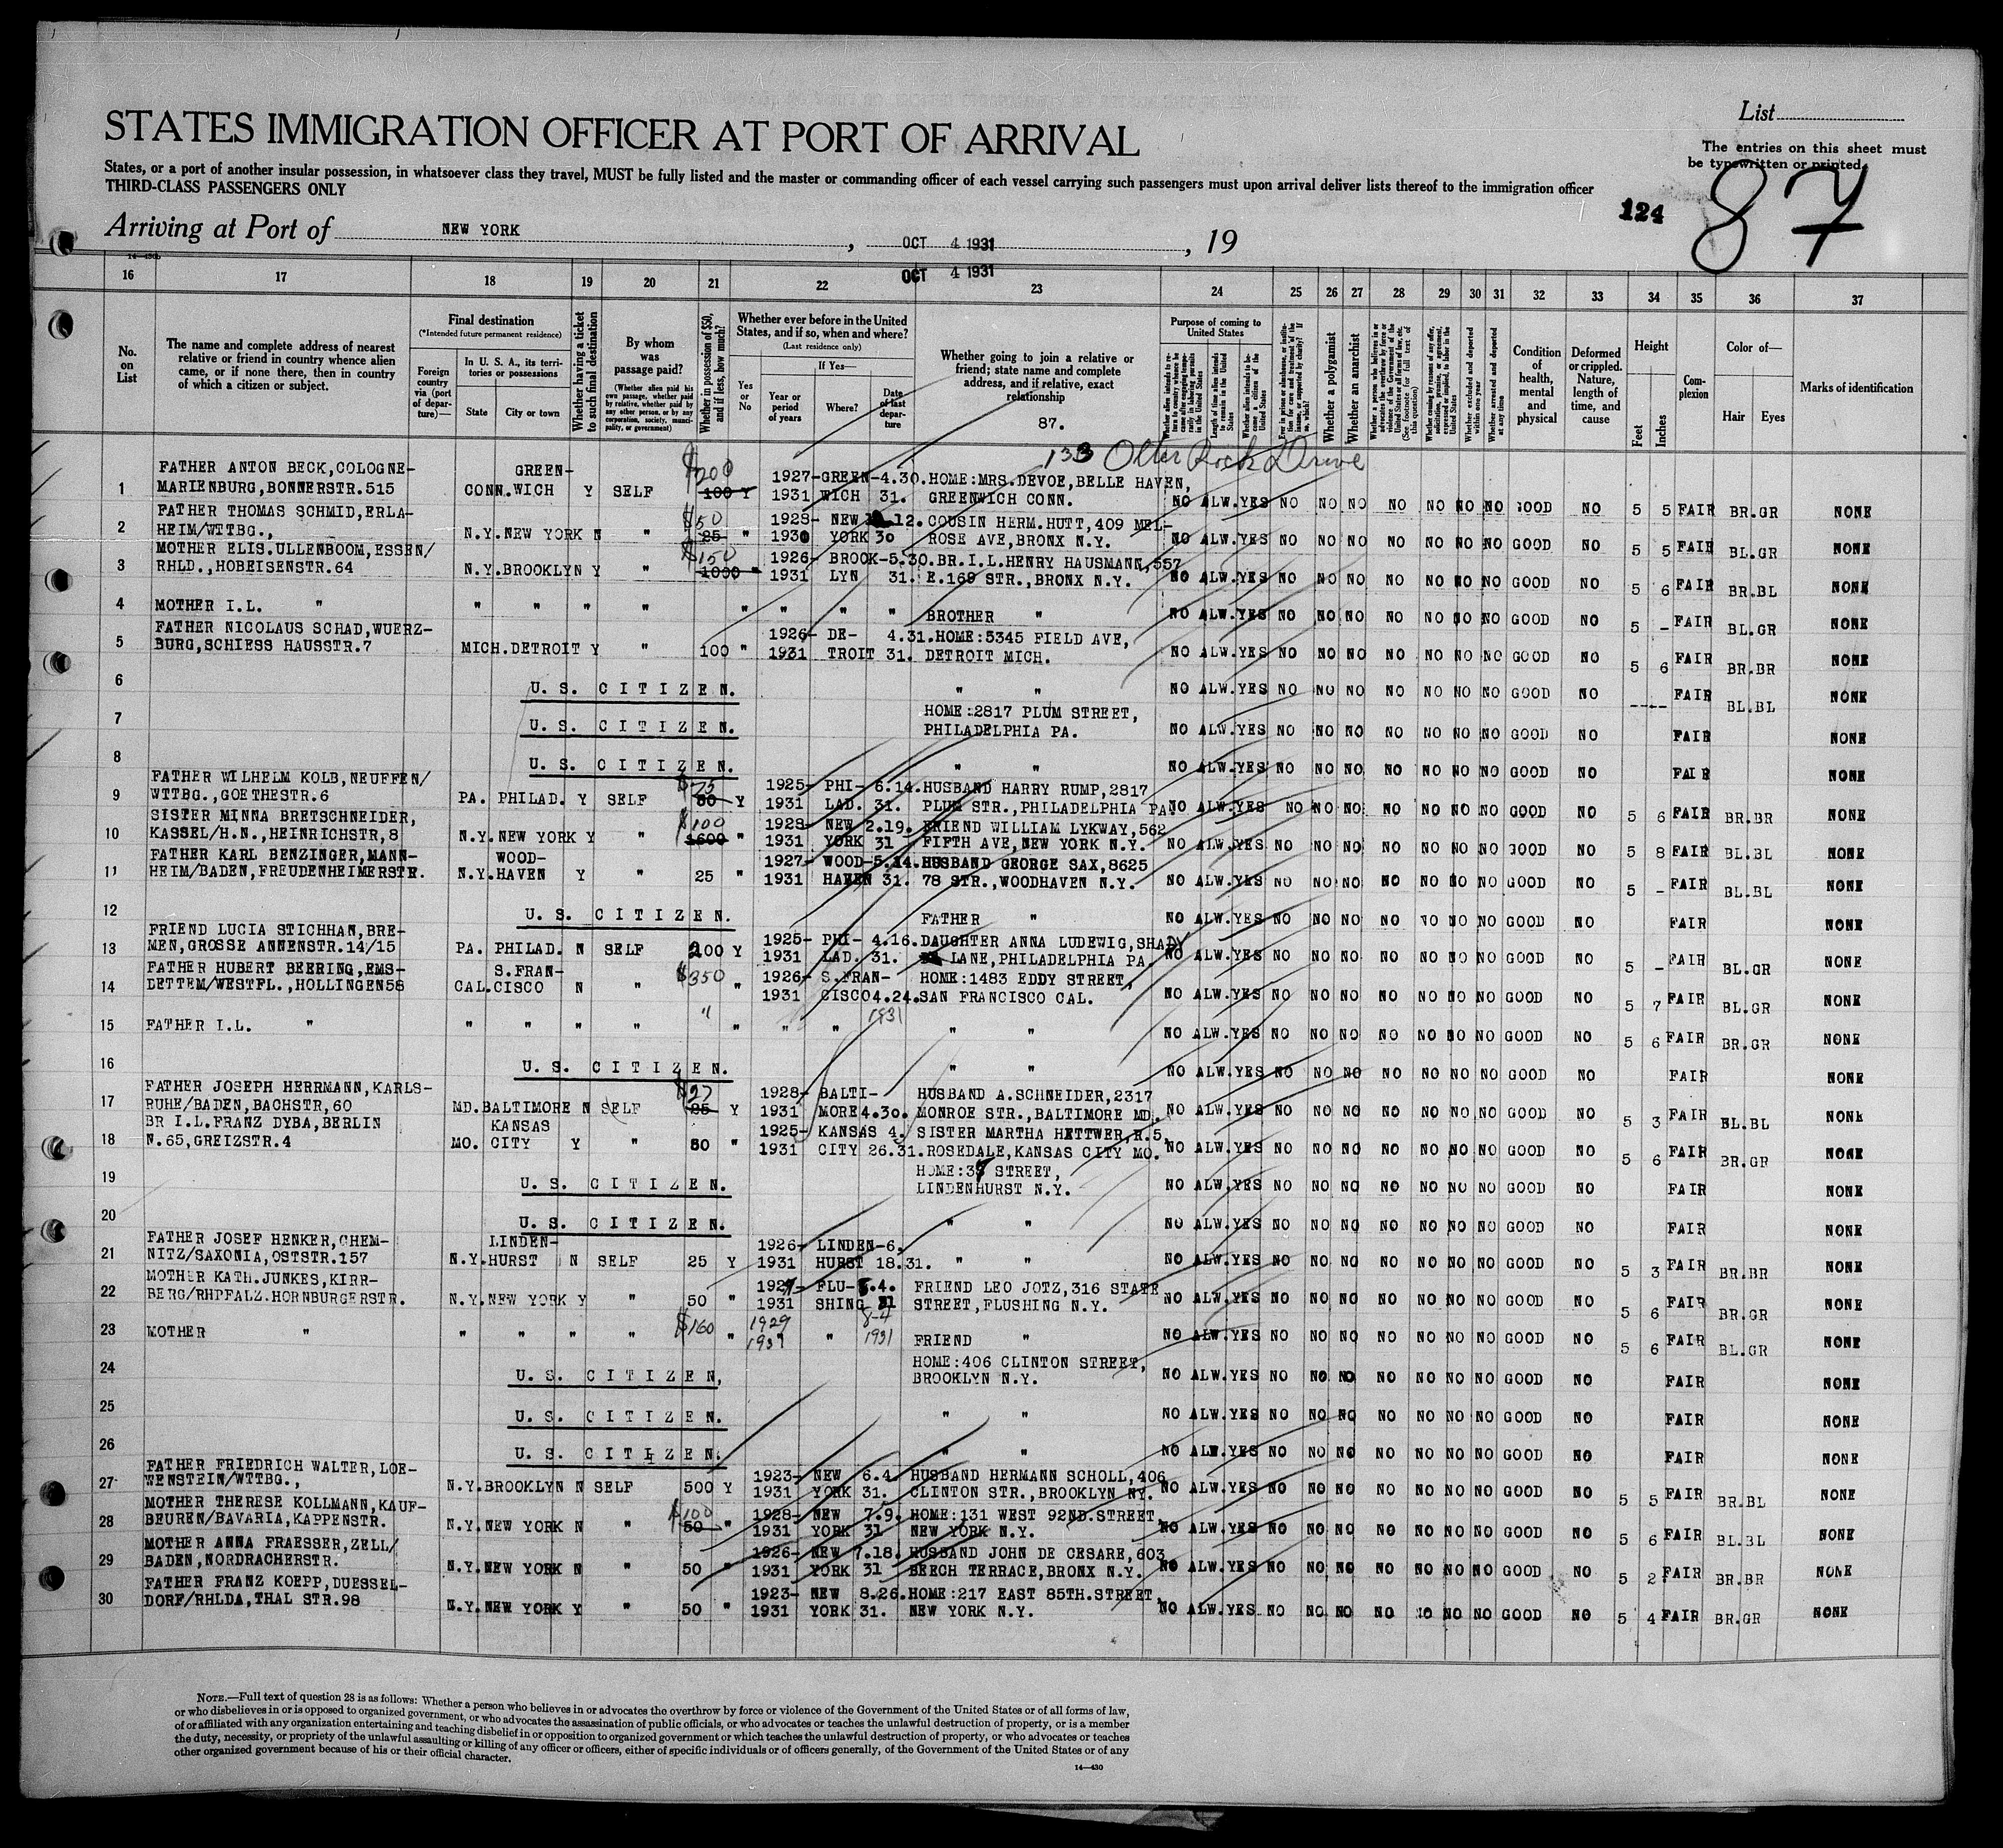 List
STATES IMMIGRATION OFFICER AT PORT OF ARRIVAL
The entries on this sheet must
be typewritten or printed.
States, or a port of another insular possession, in whatsoever class they travel, MUST be fully listed and the master or commanding officer of each vessel carrying such passengers must upon arrival deliver lists thereof to the immigration officer
THIRD-CLASS PASSENGERS ONLY
124 87
Arriving at Port of NEW YORK , OCT 4 1931 , 19
OCT 4 1931
16 17 18 19 20 21 22 23 24 25 26 27 28 29 30 31 32 33 34 35 36 37
No. on List
The name and complete address of nearest relative or friend in country whence alien came, or if none there, then in country of which a citizen or subject.
Final destination
(*Intended future permanent residence)
Foreign country via (port of departure)—
In U. S. A., its territories or possessions
State City or town
Whether having a ticket to such final destination
By whom was passage paid?
(Whether alien paid his own passage, whether paid by relative, whether paid by any other person, or by any corporation, society, municipality, or government)
Whether in possession of $50, and if less, how much?
Whether ever before in the United States, and if so, when and where?
(Last residence only)
Yes or No
If Yes—
Year or period of years
Where?
Date of last departure
Whether going to join a relative or friend; state name and complete address, and if relative, exact relationship
87.
Purpose of coming to United States
Length of time alien intends to remain in the United States
Whether alien intends to become a citizen of the United States
Whether a polygamist
Whether an anarchist
Whether excluded and deported within one year
Whether arrested and deported at any time
Condition of health, mental and physical
Deformed or crippled. Nature, length of time, and cause
Height
Feet Inches
Complexion
Color of—
Hair Eyes
Marks of identification
133 Otter Rock Drive
FATHER ANTON BECK,COLOGNE- GREEN- $200 1927-GREEN-4.30.HOME:MRS.DEVOE,BELLE HAVEN,
1 MARIENBURG,BONNERSTR.515 CONN.WICH Y SELF 100 Y 1931 WICH 31. GREENWICH CONN. NO ALW.YES NO NO NO NO NO NO NO GOOD NO 5 5 FAIR BR.GR NONE
FATHER THOMAS SCHMID,ERLA- $50 1928- NEW 12. COUSIN HERM.HUTT,409 MEL-
2 HEIM/WTTBG., N.Y.NEW YORK N " 25 " 1930 YORK 30 ROSE AVE,BRONX N.Y. NO ALW.YES NO NO NO NO NO NO NO GOOD NO 5 5 FAIR BL.GR NONE
MOTHER ELIS.ULLENBOOM,ESSEN/ $150 1926- BROOK-5.30.BR.I.L.HENRY HAUSMANN,557
3 RHLD.,HOBEISENSTR.64 N.Y.BROOKLYN Y " 1000 " 1931 LYN 31. E.169 STR.,BRONX N.Y. NO ALW.YES NO NO NO NO NO NO NO GOOD NO 5 6 FAIR BR.BL NONE
4 MOTHER I.L. " " " " " " " " " BROTHER " NO ALW.YES NO NO NO NO NO NO NO GOOD NO 5 - FAIR BL.GR NONE
FATHER NICOLAUS SCHAD,WUERZ- 1926- DE- 4.31.HOME:5345 FIELD AVE,
5 BURG,SCHIESS HAUSSTR.7 MICH.DETROIT Y " 100 " 1931 TROIT 31. DETROIT MICH. NO ALW.YES NO NO NO NO NO NO NO GOOD NO 5 6 FAIR BR.BR NONE
6 U. S. C I T I Z E N. " " NO ALW.YES NO NO NO NO NO NO NO GOOD NO ---- FAIR BL.BL NONE
HOME:2817 PLUM STREET,
7 U. S. C I T I Z E N. PHILADELPHIA PA. NO ALW.YES NO NO NO NO NO NO NO GOOD NO FAIR NONE
8 U. S. C I T I Z E N. " " NO ALW.YES NO NO NO NO NO NO NO GOOD NO FAIR NONE
FATHER WILHELM KOLB,NEUFFEN/ $75 1925- PHI- 6.14.HUSBAND HARRY RUMP,2817
9 WTTBG.,GOETHESTR.6 PA. PHILAD. Y SELF 50 Y 1931 LAD. 31. PLUM STR.,PHILADELPHIA PA. NO ALW.YES NO NO NO NO NO NO NO GOOD NO 5 6 FAIR BR.BR NONE
SISTER MINNA BRETSCHNEIDER, $100 1928- NEW 2.19. FRIEND WILLIAM LYKWAY,562
10 KASSEL/H.N.,HEINRICHSTR,8 N.Y.NEW YORK Y " 1600 " 1931 YORK 31 FIFTH AVE,NEW YORK N.Y. NO ALW.YES NO NO NO NO NO NO NO GOOD NO 5 8 FAIR BL.BL NONE
FATHER KARL BENZINGER,MANN- WOOD- 1927- WOOD-5.14.HUSBAND GEORGE SAX,8625
11 HEIM/BADEN,FREUDENHEIMERSTR. N.Y.HAVEN Y " 25 " 1931 HAVEN 31. 78 STR.,WOODHAVEN N.Y. NO ALW.YES NO NO NO NO NO NO NO GOOD NO 5 - FAIR BL.BL NONE
12 U. S. C I T I Z E N. FATHER " NO ALW.YES NO NO NO NO NO NO NO GOOD NO FAIR NONE
FRIEND LUCIA STICHHAN,BRE- 1925- PHI- 4.16.DAUGHTER ANNA LUDEWIG,SHADY
13 MEN,GROSSE ANNENSTR.14/15 PA. PHILAD. N SELF 200 Y 1931 LAD. 31. LANE,PHILADELPHIA PA. NO ALW.YES NO NO NO NO NO NO NO GOOD NO 5 - FAIR BL.GR NONE
FATHER HUBERT BEERING,EMS- S.FRAN- $350 1926- S.FRAN- HOME:1483 EDDY STREET,
14 DETTEM/WESTFL.,HOLLINGEN58 CAL.CISCO N " " 1931 CISCO4.24.SAN FRANCISCO CAL. NO ALW.YES NO NO NO NO NO NO NO GOOD NO 5 7 FAIR BL.GR NONE
15 FATHER I.L. " " " " " " " " " 1931 " " NO ALW.YES NO NO NO NO NO NO NO GOOD NO 5 6 FAIR BR.GR NONE
16 U. S. C I T I Z E N. " " NO ALW.YES NO NO NO NO NO NO NO GOOD NO FAIR NONE
FATHER JOSEPH HERRMANN,KARLS- $27 1928- BALTI- HUSBAND A.SCHNEIDER,2317
17 RUHE/BADEN,BACHSTR,60 MD.BALTIMORE N SELF 25 Y 1931 MORE4.30. MONROE STR.,BALTIMORE MD. NO ALW.YES NO NO NO NO NO NO NO GOOD NO 5 3 FAIR BL.BL NONE
BR I.L.FRANZ DYBA,BERLIN KANSAS 1925- KANSAS 4. SISTER MARTHA HETTWER,R.5,
18 N.65,GREIZSTR.4 MO. CITY Y " 80 " 1931 CITY 26.31.ROSEDALE,KANSAS CITY MO. NO ALW.YES NO NO NO NO NO NO NO GOOD NO 5 6 FAIR BR.GR NONE
STREET,
19 U. S. C I T I Z E N. LINDENHURST N.Y. NO ALW.YES NO NO NO NO NO NO NO GOOD NO FAIR NONE
20 U. S. C I T I Z E N. " " NO ALW.YES NO NO NO NO NO NO NO GOOD NO FAIR NONE
FATHER JOSEF HENKER,CHEM- LINDEN- 1926- LINDEN-6.
21 NITZ/SAXONIA,OSTSTR.157 N.Y.HURST N SELF 25 Y 1931 HURST 18.31. " " NO ALW.YES NO NO NO NO NO NO NO GOOD NO 5 3 FAIR BR.BR NONE
MOTHER KATH.JUNKES,KIRR- 1929- FLU- 8.4. FRIEND LEO JOTZ,316 STATE
22 BERG/RHPFALZ.HORNBURGERSTR. N.Y.NEW YORK Y " 50 " 1931 SHING 31 STREET,FLUSHING N.Y. NO ALW.YES NO NO NO NO NO NO NO GOOD NO 5 6 FAIR BR.GR NONE
1929 8-4
23 MOTHER " " " " " $160 " 1931 " 1931 FRIEND " NO ALW.YES NO NO NO NO NO NO NO GOOD NO 5 6 FAIR BL.GR NONE
HOME:406 CLINTON STREET,
24 U. S. C I T I Z E N, BROOKLYN N.Y. NO ALW.YES NO NO NO NO NO NO NO GOOD NO FAIR NONE
25 U. S. C I T I Z E N. " " NO ALW.YES NO NO NO NO NO NO NO GOOD NO FAIR NONE
26 U. S. C I T I Z E N. " " NO ALW.YES NO NO NO NO NO NO NO GOOD NO FAIR NONE
FATHER FRIEDRICH WALTER,LOE- 1923- NEW 6.4. HUSBAND HERMANN SCHOLL,406
27 WENSTEIN/WTTBG., N.Y.BROOKLYN N SELF 500 Y 1931 YORK 31. CLINTON STR.,BROOKLYN NY. NO ALW.YES NO NO NO NO NO NO NO GOOD NO 5 5 FAIR BR.BL NONE
MOTHER THERESE KOLLMANN,KAUF- $100 1928- NEW 7.9. HOME:131 WEST 92ND.STREET,
28 BEUREN/BAVARIA,KAPPENSTR. N.Y.NEW YORK N " 50 " 1931 YORK 31 NEW YORK N.Y. NO ALW.YES NO NO NO NO NO NO NO GOOD NO 5 6 FAIR BL.BL NONE
MOTHER ANNA FRAESSER,ZELL/ 1926- NEW 7.18. HUSBAND JOHN DE CESARE,603
29 BADEN,NORDRACHERSTR. N.Y.NEW YORK N " 50 " 1931 YORK 31 BEECH TERRACE,BRONX N.Y. NO ALW.YES NO NO NO NO NO NO NO GOOD NO 5 2 FAIR BR.BR NONE
FATHER FRANZ KOEPP,DUESSEL- 1923- NEW 8.26.HOME:217 EAST 85TH.STREET,
30 DORF/RHLDA,THAL STR.98 N.Y.NEW YORK Y " 50 " 1931 YORK 31. NEW YORK N.Y. NO ALW.YES NO NO NO NO NO NO NO GOOD NO 5 4 FAIR BR.GR NONE
NOTE.—Full text of question 28 is as follows: Whether a person who believes in or advocates the overthrow by force or violence of the Government of the United States or of all forms of law,
or who disbelieves in or is opposed to organized government, or who advocates the assassination of public officials, or who advocates or teaches the unlawful destruction of property, or is a member
of or affiliated with any organization entertaining and teaching disbelief in or opposition to organized government or which teaches the unlawful destruction of property, or who advocates or teaches
the duty, necessity, or propriety of the unlawful assaulting or killing of any officer or officers, either of specific individuals or of officers generally, of the Government of the United States or of any
other organized government because of his or their official character.
14—430